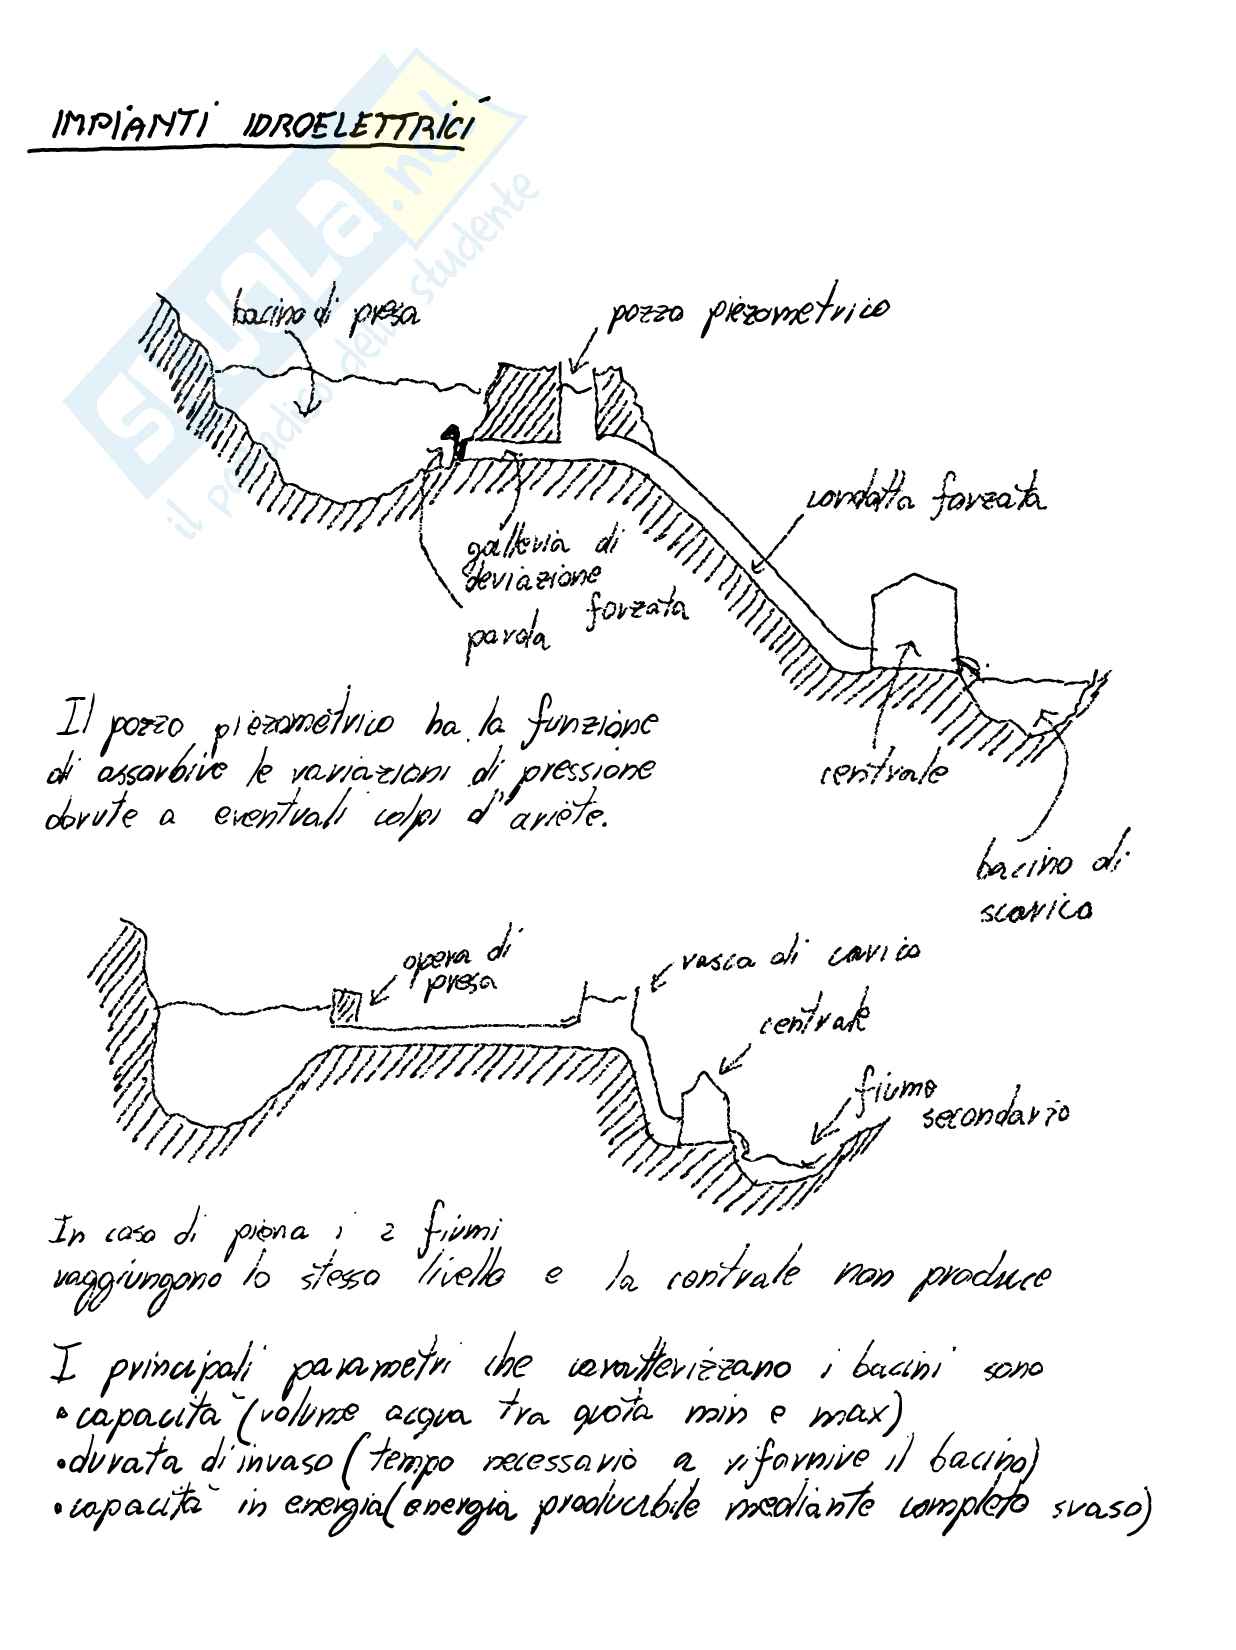 IMPIANTI IDROELETTRICI
SKUOLA.net
il paradiso dello studente
bacino di presa
pozzo piezometrico
condotta forzata
galleria di
deviazione
forzata
parola
Il pozzo piezometrico ha la funzione
di assorbire le variazioni di pressione
dovute a eventuali colpi d'ariete.
centrale
bacino di
scarico
opera di
presa
vasca di carico
centrale
fiume
secondario
In caso di piena i 2 fiumi
raggiungono lo stesso livello e la centrale non produce
I principali parametri che caratterizzano i bacini sono
• capacità (volume acqua tra quota min e max)
• durata di invaso (tempo necessario a rifornire il bacino)
• capacità in energia (energia producibile mediante completo svaso)